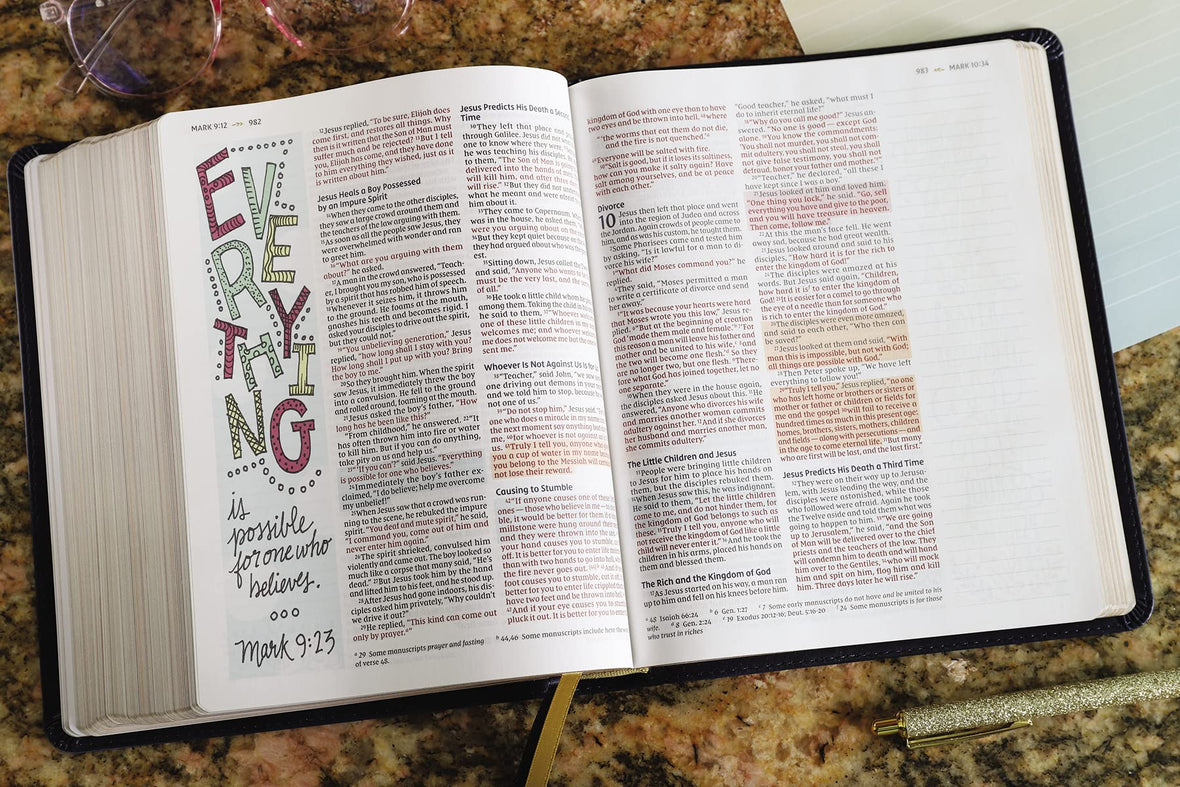 MARK 9:12 982
EVERYTHING
is
possible
for one who
believes.
Mark 9:23
12Jesus replied, "To be sure, Elijah does
come first, and restores all things. Why
then is it written that the Son of Man must
suffer much and be rejected? 13But I tell
you, Elijah has come, and they have done
to him everything they wished, just as it
is written about him."
Jesus Heals a Boy Possessed
by an Impure Spirit
14When they came to the other disciples,
they saw a large crowd around them and
the teachers of the law arguing with them.
15As soon as all the people saw Jesus, they
were overwhelmed with wonder and ran
to greet him.
16"What are you arguing with them
about?" he asked.
17A man in the crowd answered, "Teach-
er, I brought you my son, who is possessed
by a spirit that has robbed him of speech.
18Whenever it seizes him, it throws him
to the ground. He foams at the mouth,
gnashes his teeth and becomes rigid. I
asked your disciples to drive out the spirit,
but they could not."
19"You unbelieving generation," Jesus
replied, "how long shall I stay with you?
How long shall I put up with you? Bring
the boy to me."
20So they brought him. When the spirit
saw Jesus, it immediately threw the boy
into a convulsion. He fell to the ground
and rolled around, foaming at the mouth.
21Jesus asked the boy's father, "How
long has he been like this?"
"From childhood," he answered. 22"It
has often thrown him into fire or water
to kill him. But if you can do anything,
take pity on us and help us."
23"'If you can'?" said Jesus. "Everything
is possible for one who believes."
24Immediately the boy's father ex-
claimed, "I do believe; help me overcome
my unbelief!"
25When Jesus saw that a crowd was run-
ning to the scene, he rebuked the impure
spirit. "You deaf and mute spirit," he said,
"I command you, come out of him and
never enter him again."
26The spirit shrieked, convulsed him
violently and came out. The boy looked so
much like a corpse that many said, "He's
dead." 27But Jesus took him by the hand
and lifted him to his feet, and he stood up.
28After Jesus had gone indoors, his dis-
ciples asked him privately, "Why couldn't
we drive it out?"
29He replied, "This kind can come out
only by prayer.a"
Jesus Predicts His Death a Second
Time
30They left that place and
through Galilee. Jesus did not
one to know where they were,
he was teaching his disciples. He
to them, "The Son of Man is going
delivered into the hands of men.
will kill him, and after three
will rise." 32But they did not under
what he meant and were afraid
him about it.
33They came to Capernaum. When
was in the house, he asked them,
were you arguing about on the
34But they kept quiet because on
they had argued about who was the
est.
35Sitting down, Jesus called the
and said, "Anyone who wants to
must be the very last, and the
of all."
36He took a little child whom he
among them. Taking the child in
he said to them, 37"Whoever
one of these little children in my
welcomes me; and whoever
me does not welcome me but the
sent me."
Whoever Is Not Against Us Is for Us
38"Teacher," said John, "we saw
one driving out demons in your
and we told him to stop, because
not one of us."
39"Do not stop him," Jesus said.
one who does a miracle in my name
the next moment say anything
me, 40for whoever is not against us
us. 41Truly I tell you, anyone who
you a cup of water in my name because
you belong to the Messiah will
not lose their reward.
Causing to Stumble
42"If anyone causes one of these
ones — those who believe in me — to
ble, it would be better for them if a
millstone were hung around their
and they were thrown into the
your hand causes you to stumble,
off. It is better for you to enter life
than with two hands to go into hell,
the fire never goes out.
foot causes you to stumble, cut it off.
is better for you to enter life crippled
have two feet and be thrown into hell.
And if your eye causes you to
pluck it out. It is better for you to enter
a 29 Some manuscripts prayer and fasting
b 44,46 Some manuscripts include here the
of verse 48.
983 MARK 10:34
kingdom of God with one eye than to have
two eyes and be thrown into hell, 48where
"'the worms that eat them do not die,
and the fire is not quenched.'a
49Everyone will be salted with fire.
50"Salt is good, but if it loses its saltiness,
how can you make it salty again? Have
salt among yourselves, and be at peace
with each other."
Divorce
10 Jesus then left that place and went
into the region of Judea and across
the Jordan. Again crowds of people came to
him, and as was his custom, he taught them.
2Some Pharisees came and tested him
by asking, "Is it lawful for a man to di-
vorce his wife?"
3"What did Moses command you?" he
replied.
4They said, "Moses permitted a man
to write a certificate of divorce and send
her away."
5"It was because your hearts were hard
that Moses wrote you this law," Jesus re-
plied. 6"But at the beginning of creation
God 'made them male and female.'b 7'For
this reason a man will leave his father and
mother and be united to his wife,c 8and
the two will become one flesh.'d So they
are no longer two, but one flesh. 9There-
fore what God has joined together, let no
one separate."
10When they were in the house again,
the disciples asked Jesus about this. 11He
answered, "Anyone who divorces his wife
and marries another woman commits
adultery against her. 12And if she divorces
her husband and marries another man,
she commits adultery."
The Little Children and Jesus
13People were bringing little children
to Jesus for him to place his hands on
them, but the disciples rebuked them.
14When Jesus saw this, he was indignant.
He said to them, "Let the little children
come to me, and do not hinder them, for
the kingdom of God belongs to such as
these. 15Truly I tell you, anyone who will
not receive the kingdom of God like a little
child will never enter it." 16And he took the
children in his arms, placed his hands on
them and blessed them.
The Rich and the Kingdom of God
17As Jesus started on his way, a man ran
up to him and fell on his knees before him.
"Good teacher," he asked, "what must I
do to inherit eternal life?"
18"Why do you call me good?" Jesus an-
swered. "No one is good — except God
alone. 19You know the commandments:
'You shall not murder, you shall not com-
mit adultery, you shall not steal, you shall
not give false testimony, you shall not
defraud, honor your father and mother.'e"
20"Teacher," he declared, "all these I
have kept since I was a boy."
21Jesus looked at him and loved him.
"One thing you lack," he said. "Go, sell
everything you have and give to the poor,
and you will have treasure in heaven.
Then come, follow me."
22At this the man's face fell. He went
away sad, because he had great wealth.
23Jesus looked around and said to his
disciples, "How hard it is for the rich to
enter the kingdom of God!"
24The disciples were amazed at his
words. But Jesus said again, "Children,
how hard it isf to enter the kingdom of
God! 25It is easier for a camel to go through
the eye of a needle than for someone who
is rich to enter the kingdom of God."
26The disciples were even more amazed,
and said to each other, "Who then can
be saved?"
27Jesus looked at them and said, "With
man this is impossible, but not with God;
all things are possible with God."
28Then Peter spoke up, "We have left
everything to follow you!"
29"Truly I tell you," Jesus replied, "no one
who has left home or brothers or sisters or
mother or father or children or fields for
me and the gospel 30will fail to receive a
hundred times as much in this present age:
homes, brothers, sisters, mothers, children
and fields — along with persecutions — and
in the age to come eternal life. 31But many
who are first will be last, and the last first."
Jesus Predicts His Death a Third Time
32They were on their way up to Jerusa-
lem, with Jesus leading the way, and the
disciples were astonished, while those
who followed were afraid. Again he took
the Twelve aside and told them what was
going to happen to him. 33"We are going
up to Jerusalem," he said, "and the Son
of Man will be delivered over to the chief
priests and the teachers of the law. They
will condemn him to death and will hand
him over to the Gentiles, 34who will mock
him and spit on him, flog him and kill
him. Three days later he will rise."
a 48 Isaiah 66:24 b 6 Gen. 1:27 c 7 Some early manuscripts do not have and be united to his
wife. d 8 Gen. 2:24 e 19 Exodus 20:12-16; Deut. 5:16-20 f 24 Some manuscripts is for those
who trust in riches